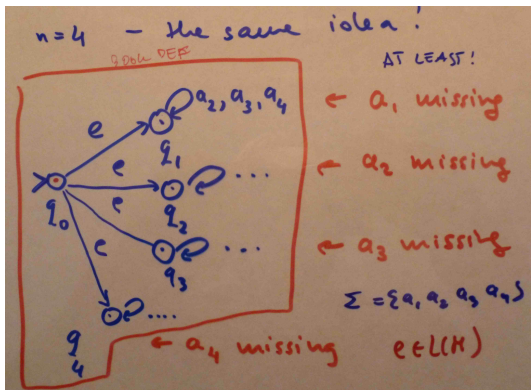 n=4 - the same idea!
BOOK DEF
AT LEAST!
e
a2, a3, a4
← a1 missing
q1
e
← a2 missing
q0
e
q2
....
e
q3
....
← a3 missing
Σ = {a1 a2 a3 a4}
....
q4
← a4 missing
e∈L(M)